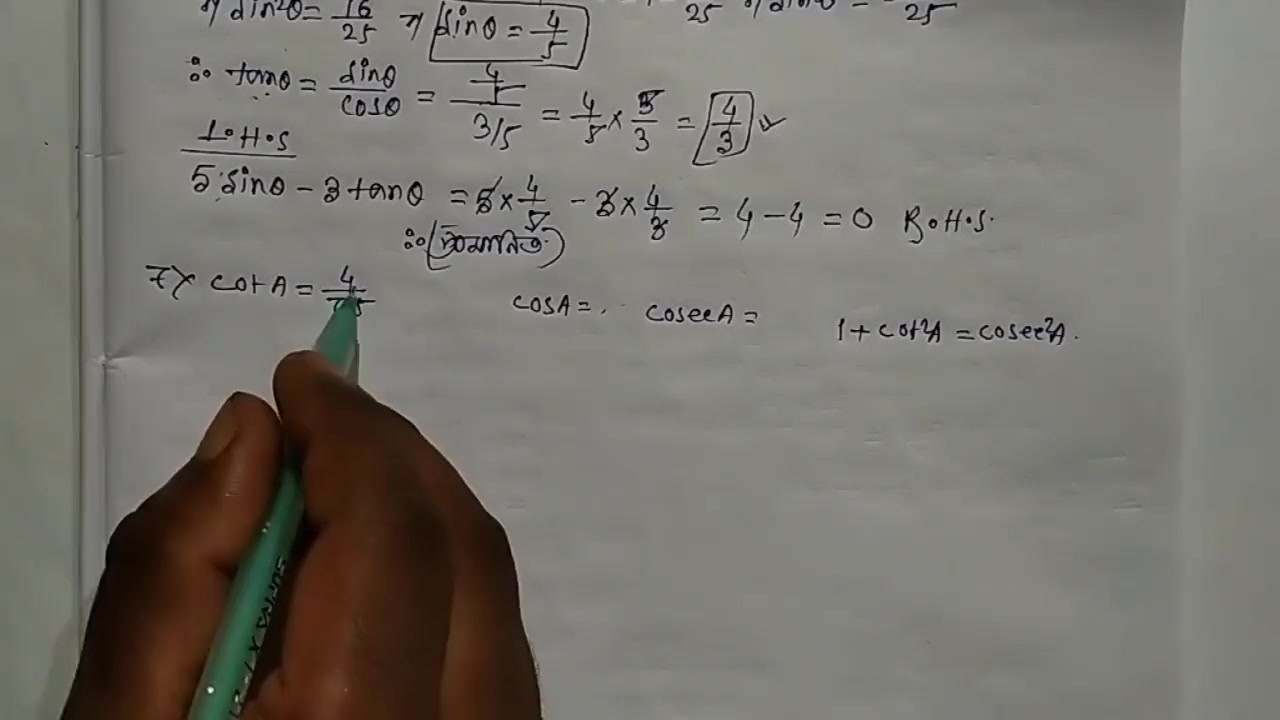 ⇒ sin²θ = 16/25 ⇒ sinθ = 4/5
25 25
∴ tanθ = sinθ/cosθ = 4/5 / 3/5 = 4/5 × 5/3 = 4/3 ✓
L.H.S
5 sinθ - 3 tanθ = 5 × 4/5 - 3 × 4/3 = 4 - 4 = 0 R.H.S.
∴ (প্রমানিত)
7) cot A = 4/7.5 cosA = . cosecA = 1 + cot²A = cosec²A.